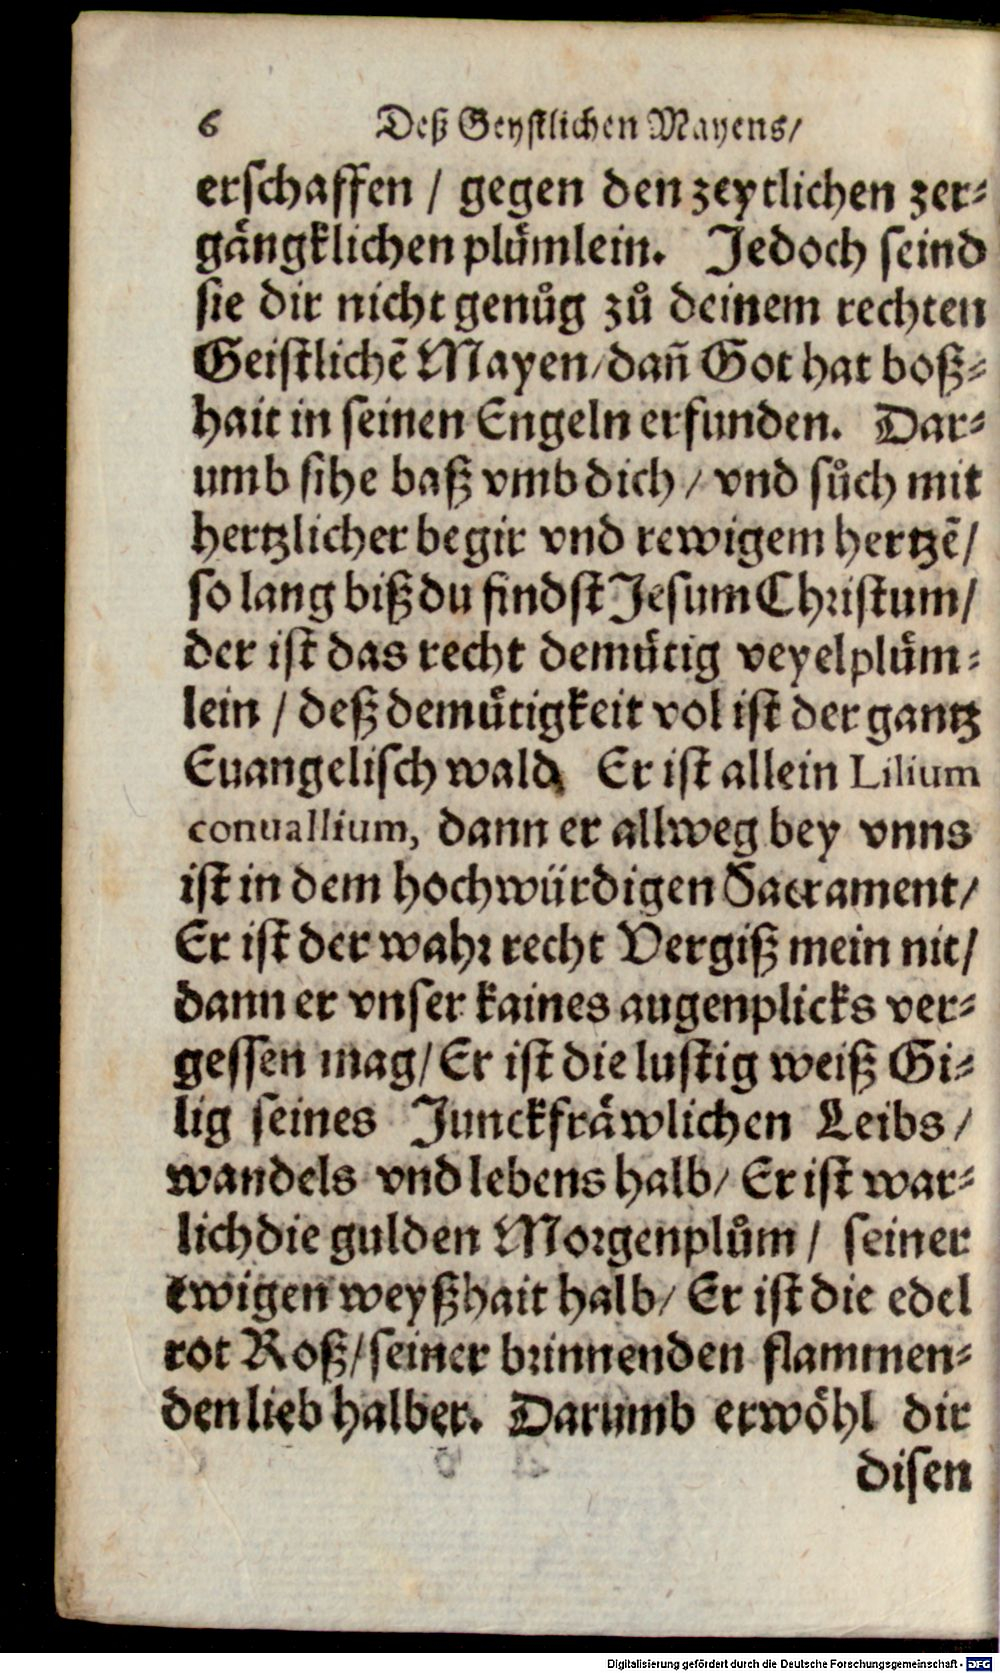 6 Deß Geystlichen Mayens/
erschaffen / gegen den zeytlichen zer⸗
gaͤngklichen pluͤmlein. Jedoch seind
sie dir nicht genuͦg zuͦ deinem rechten
Geistlichẽ Mayen/dañ Got hat boß⸗
hait in seinen Engeln erfunden. Dar⸗
umb sihe baß vmb dich / vnd suͦch mit
hertzlicher begir vnd rewigem hertzẽ/
so lang biß du findst Jesum Christum/
der ist das recht demuͤtig veyelpluͤm⸗
lein / deß demuͤtigkeit vol ist der gantz
Euangelisch wald. Er ist allein Lilium
conuallium, dann er allweg bey vnns
ist in dem hochwürdigen Sacrament/
Er ist der wahr recht Vergiß mein nit/
dann er vnser kaines augenplicks ver⸗
gessen mag/ Er ist die lustig weiß Gi⸗
lig seines Junckfraͤwlichen Leibs /
wandels vnd lebens halb/ Er ist war⸗
lich die gulden Morgenpluͦm / seiner
ewigen weyßhait halb/ Er ist die edel
rot Roß/seiner brinnenden flammen⸗
den lieb halber. Darumb erwoͤhl dir
disen
Digitalisierung gefördert durch die Deutsche Forschungsgemeinschaft - DFG